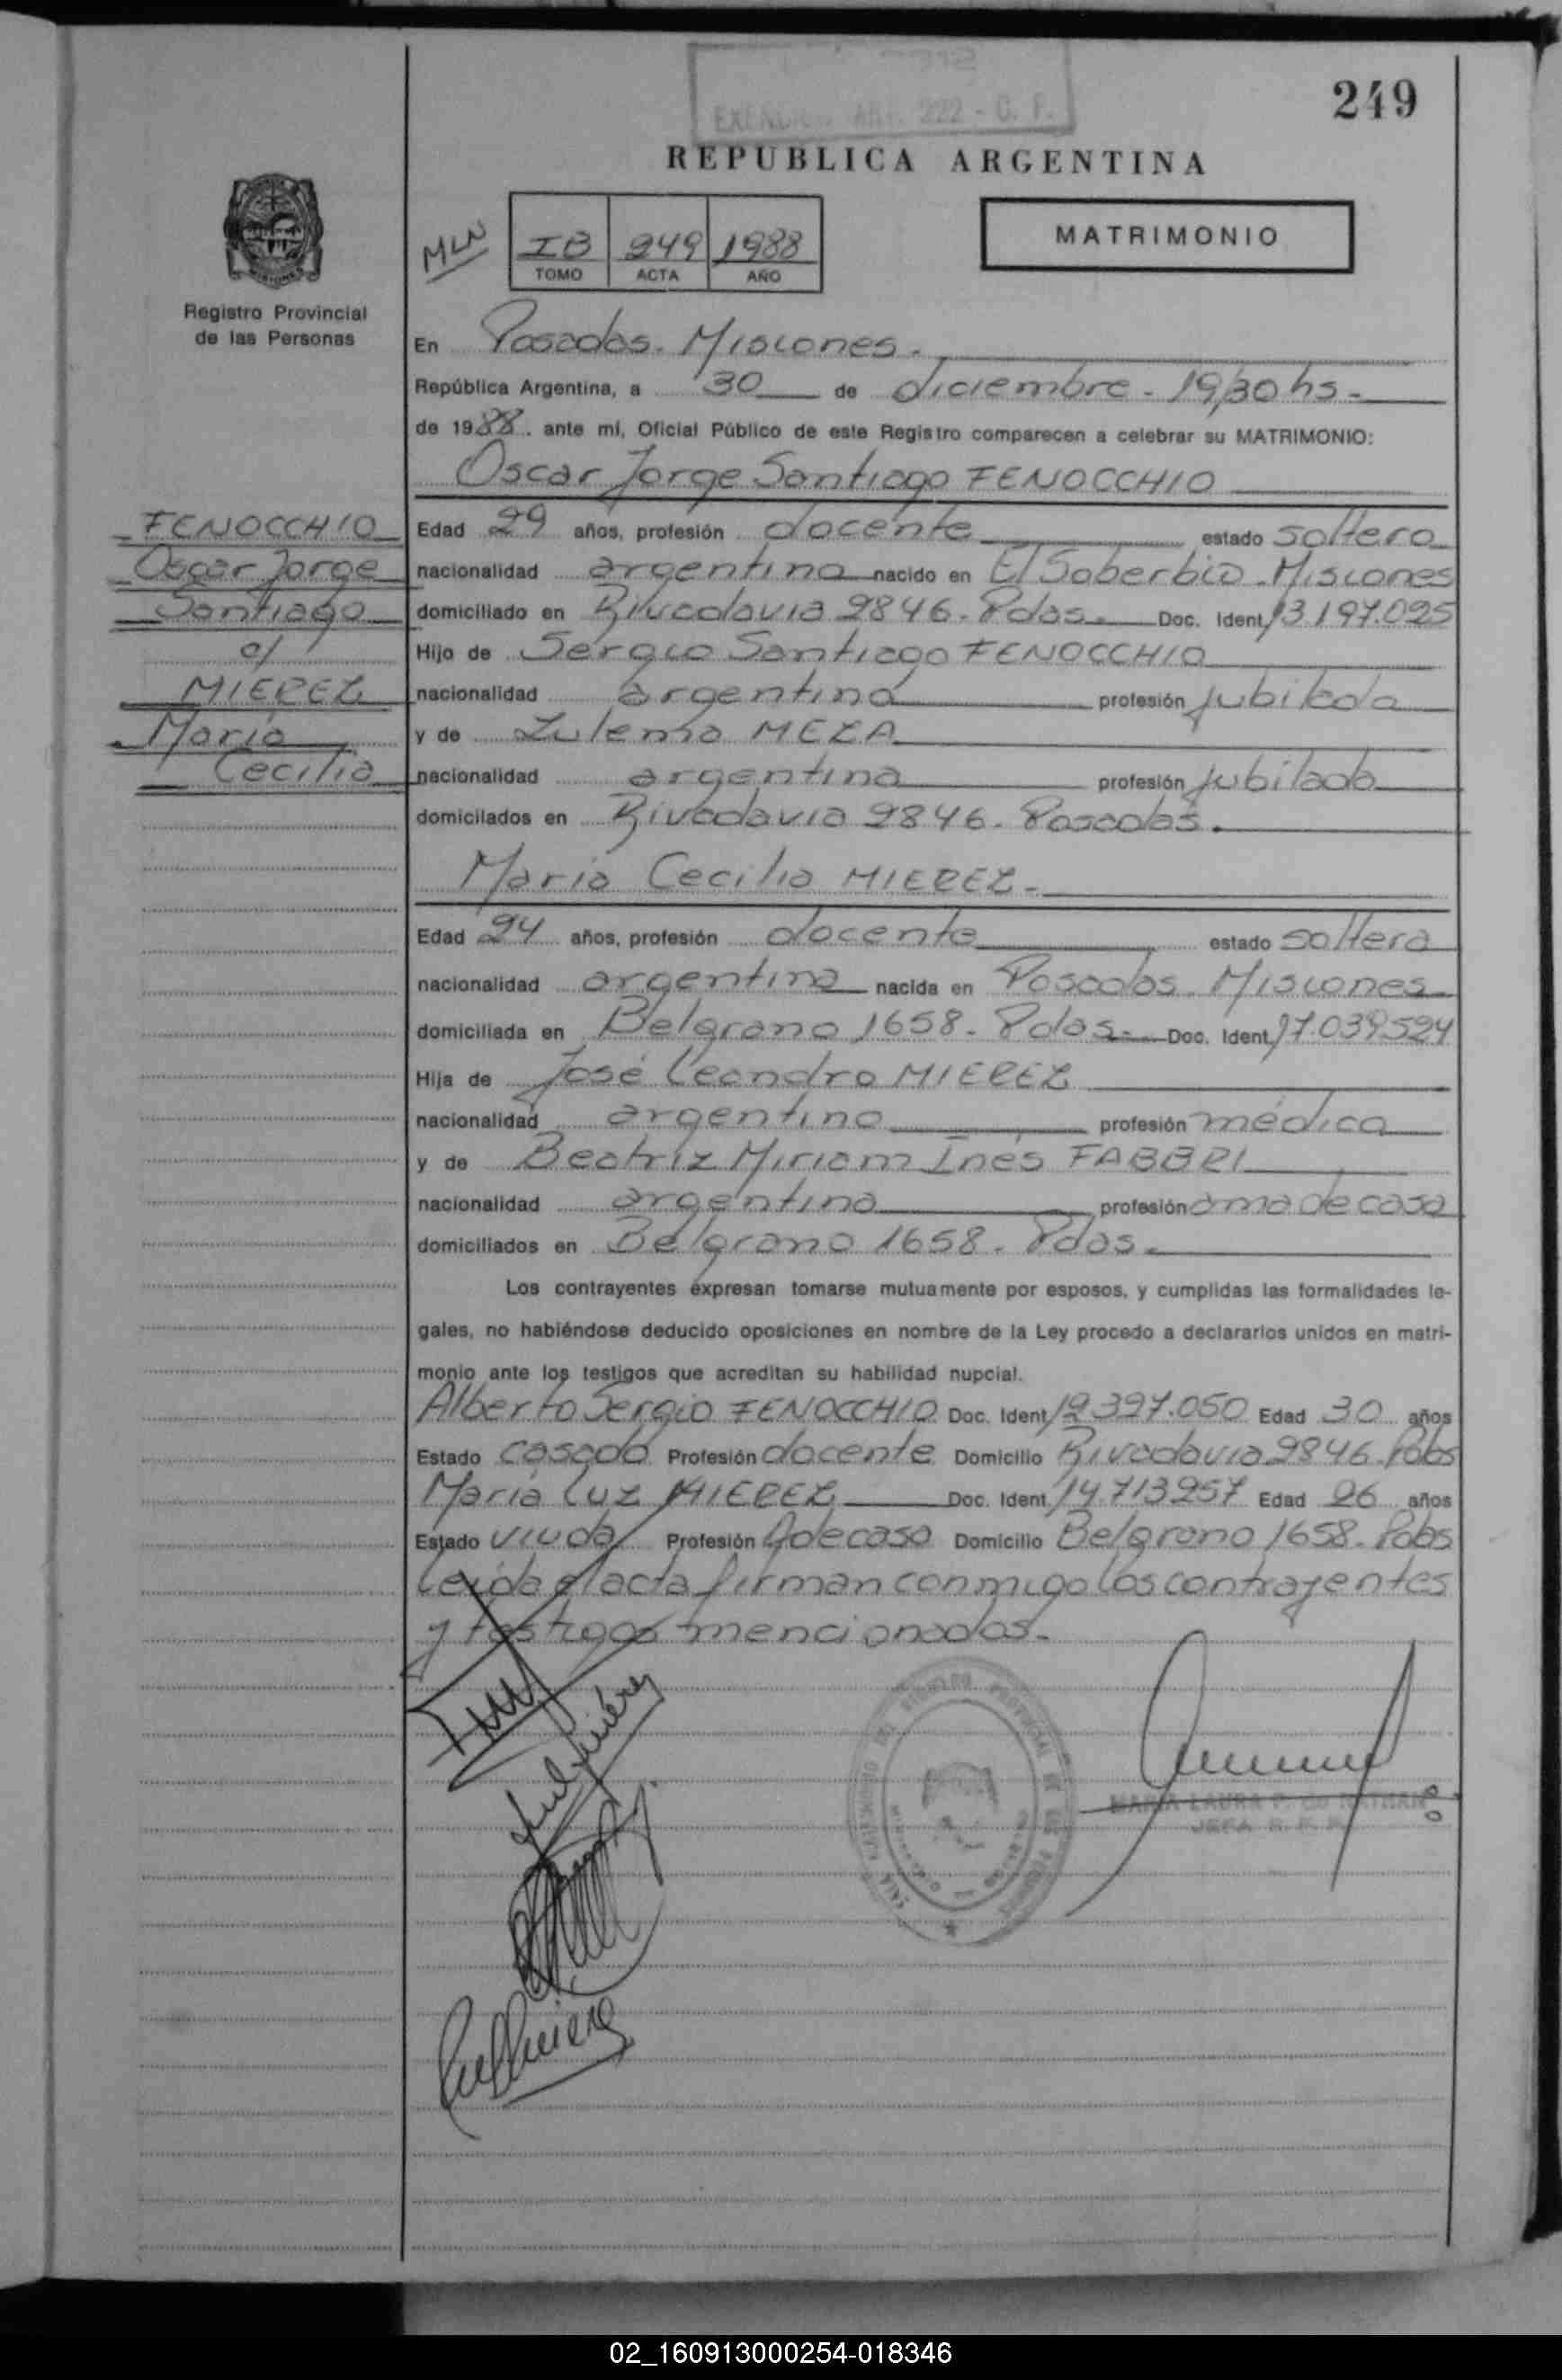 249
EXENCION ART. 222 - C. F.
REPUBLICA ARGENTINA
MLN
IB 249 1988
TOMO ACTA AÑO
MATRIMONIO
Registro Provincial
de las Personas
En Posadas. Misiones.
República Argentina, a 30 de diciembre - 19,30 hs -
de 1988. ante mí, Oficial Público de este Registro comparecen a celebrar su MATRIMONIO:
Oscar Jorge Santiago FENOCCHIO
FENOCCHIO
Oscar Jorge
Santiago
c/
MIEREZ
María
Cecilia
Edad 29 años, profesión docente estado soltero
nacionalidad argentino nacido en El Soberbio. Misiones
domiciliado en Rivadavia 2846. Pdas. Doc. Ident. 13.197.025
Hijo de Sergio Santiago FENOCCHIO
nacionalidad argentina profesión jubilado
y de Zulema MEZA
nacionalidad argentina profesión jubilada
domicilados en Rivadavia 2846. Posadas.
María Cecilia MIEREZ-
Edad 24 años, profesión docente estado soltera
nacionalidad argentina nacida en Posadas. Misiones
domiciliada en Belgrano 1658. Pdas. Doc. Ident. 17.039.524
Hija de José Leandro MIEREZ
nacionalidad argentino profesión médico
y de Beatriz Miriam Inés FABBRI
nacionalidad argentina profesión ama de casa
domiciliados en Belgrano 1658. Pdas.
Los contrayentes expresan tomarse mutuamente por esposos, y cumplidas las formalidades le-
gales, no habiéndose deducido oposiciones en nombre de la Ley procedo a declararlos unidos en matri-
monio ante los testigos que acreditan su habilidad nupcial.
Alberto Sergio FENOCCHIO Doc. Ident. 12.397.050 Edad 30 años
Estado casado Profesión docente Domicilio Rivadavia 2846. Pdas
María Luz MIEREZ Doc. Ident. 14.713.257 Edad 26 años
Estado viuda Profesión A de casa Domicilio Belgrano 1658. Pdas
Leída el acta firman conmigo los contrayentes
y testigos mencionados.-
MARIA LAURA P. de NATHAN
JEFA R. P. P.
02_160913000254-018346